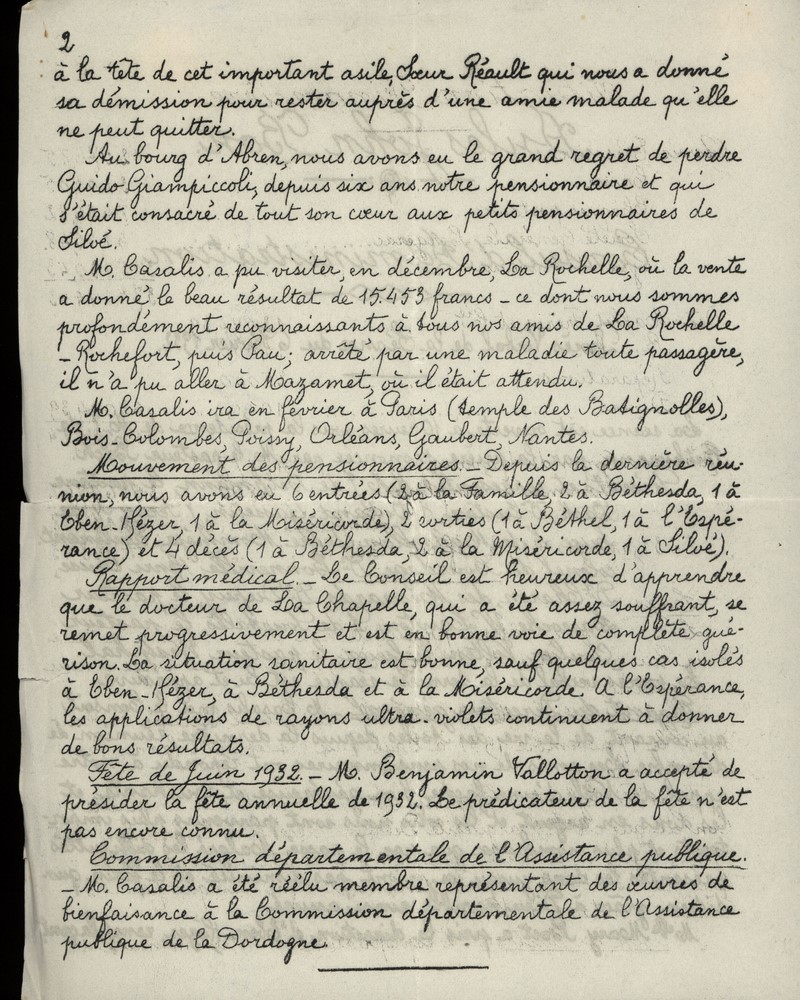 2
à la tête de cet important asile, Sœur Réault qui nous a donné
sa démission pour rester auprès d'une amie malade qu'elle
ne peut quitter.
Au bourg d'Abren, nous avons eu le grand regret de perdre
Guido Giampiccoli, depuis six ans notre pensionnaire et qui
s'était consacré de tout son cœur aux petits pensionnaires de
Siloé.
M. Casalis a pu visiter, en décembre, La Rochelle, où la vente
a donné le beau résultat de 15.453 francs - ce dont nous sommes
profondément reconnaissants à tous nos amis de La Rochelle
- Rochefort, puis Pau; arrêté par une maladie toute passagère,
il n'a pu aller à Mazamet, où il était attendu.
M. Casalis ira en février à Paris (temple des Batignolles),
Bois-Colombes, Poissy, Orléans, Gaubert, Nantes.
Mouvement des pensionnaires. - Depuis la dernière réu-
nion, nous avons eu 6 entrées (2 à la Famille, 2 à Béthesda, 1 à
Eben-Hézer, 1 à la Miséricorde), 2 sorties (1 à Béthel, 1 à l'Espé-
rance) et 4 décès (1 à Béthesda, 2 à la Miséricorde, 1 à Siloé).
Rapport médical. - Le Conseil est heureux d'apprendre
que le docteur de La Chapelle, qui a été assez souffrant, se
remet progressivement et est en bonne voie de complète gué-
rison. La situation sanitaire est bonne, sauf quelques cas isolés
à Eben-Hézer, à Béthesda et à la Miséricorde. A l'Espérance,
les applications de rayons ultra-violets continuent à donner
de bons résultats.
Fête de Juin 1932. - M. Benjamin Vallotton a accepté de
présider la fête annuelle de 1932. Le prédicateur de la fête n'est
pas encore connu.
Commission départementale de l'Assistance publique.
- M. Casalis a été réélu membre représentant des œuvres de
bienfaisance à la Commission départementale de l'Assistance
publique de la Dordogne.